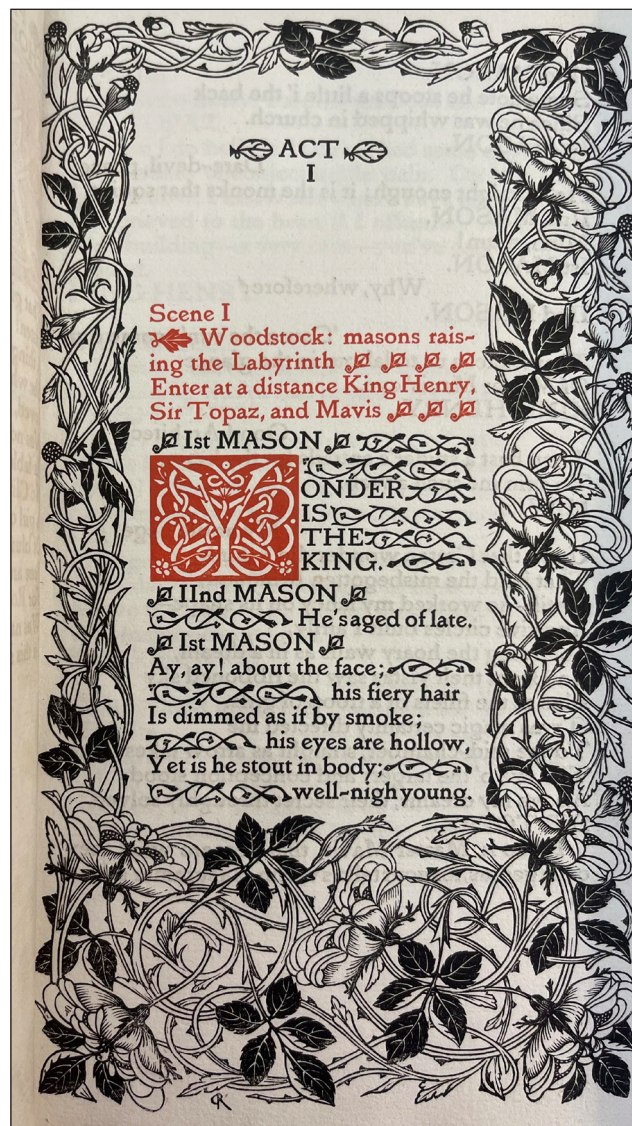 ACT
I
Scene I
Woodstock: masons rais-
ing the Labyrinth
Enter at a distance King Henry,
Sir Topaz, and Mavis
Ist MASON
YONDER
IS
THE
KING.
IInd MASON
He's aged of late.
Ist MASON
Ay, ay! about the face;
his fiery hair
Is dimmed as if by smoke;
his eyes are hollow,
Yet is he stout in body;
well-nigh young.
CR